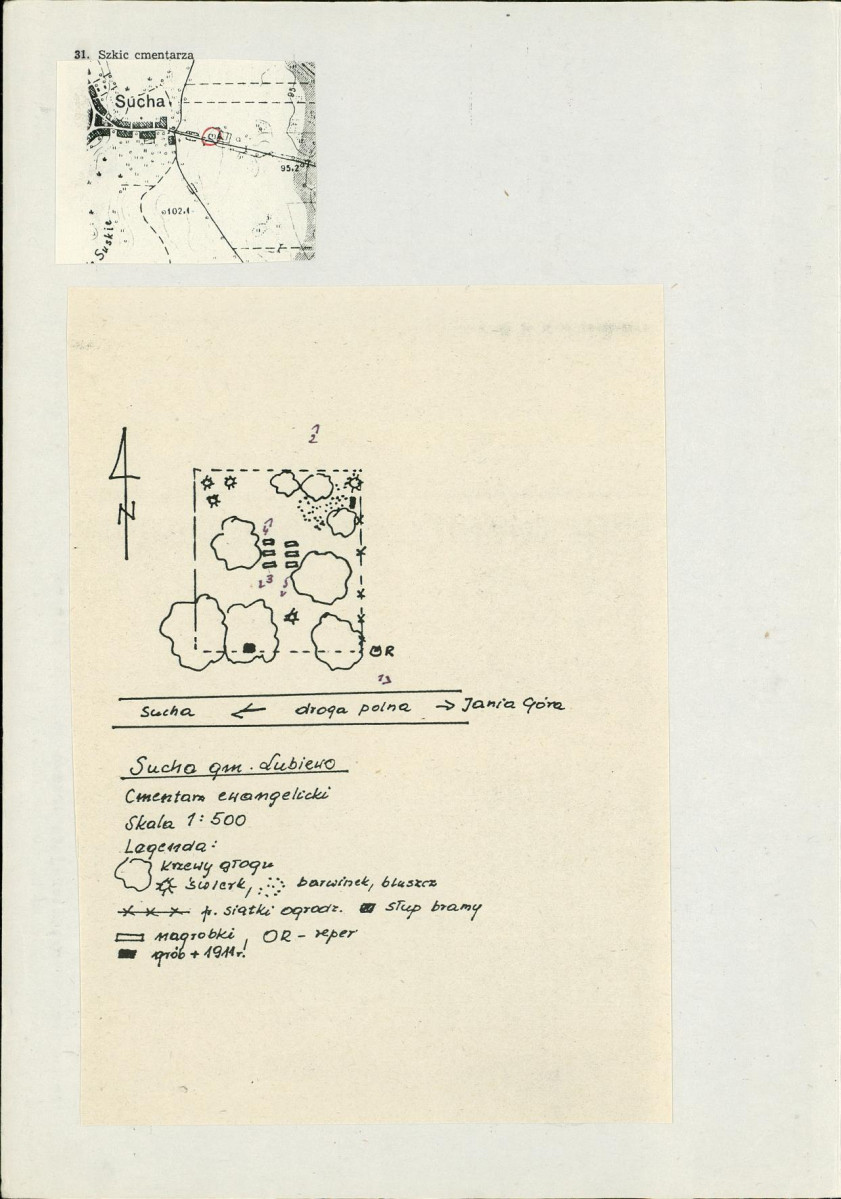 31. Szkic cmentarza
Sucha
95.2
102.1
Suskie
N
2
4
3
5
OR
13
Sucha ← droga polna → Jania Góra
Sucha gm. Lubiewo
Cmentarz ewangelicki
Skala 1:500
Legenda:
krzewy głogu
świerk, barwinek, bluszcz
x x x p. siatki ogrodz. słup bramy
nagrobki, OR - reper
grób + 1911r.!